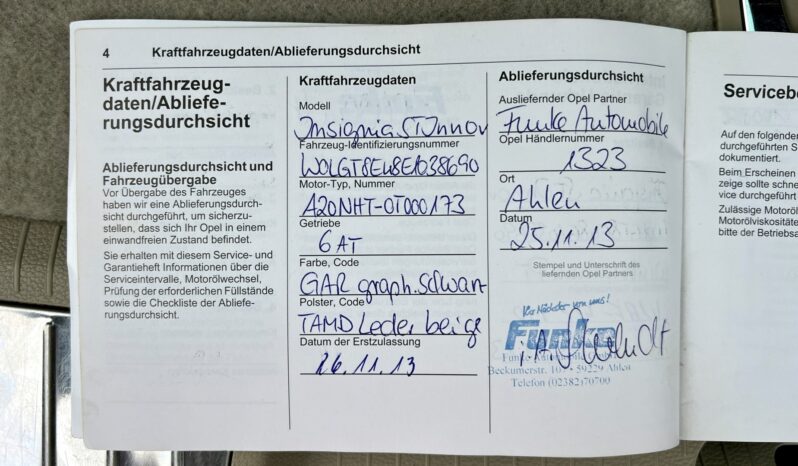 4 Kraftfahrzeugdaten/Ablieferungsdurchsicht
Kraftfahrzeug-
daten/Abliefe-
rungsdurchsicht
Ablieferungsdurchsicht und
Fahrzeugübergabe
Vor Übergabe des Fahrzeuges
haben wir eine Ablieferungsdurch-
sicht durchgeführt, um sicherzu-
stellen, dass sich Ihr Opel in einem
einwandfreien Zustand befindet.
Sie erhalten mit diesem Service- und
Garantieheft Informationen über die
Serviceintervalle, Motorölwechsel,
Prüfung der erforderlichen Füllstände
sowie die Checkliste der Abliefe-
rungsdurchsicht.
Kraftfahrzeugdaten
Modell
Insignia ST Innov
Fahrzeug-Identifizierungsnummer
W0LGT8EW8E1038690
Motor-Typ, Nummer
A20NHT-0T000173
Getriebe
6 AT
Farbe, Code
GAR graph. Schwarz
Polster, Code
TAMD Leder beige
Datum der Erstzulassung
26.11.13
Ablieferungsdurchsicht
Ausliefernder Opel Partner
Funke Automobile
Opel Händlernummer
1323
Ort
Ahlen
Datum
25.11.13
Stempel und Unterschrift des
liefernden Opel Partners
Ihr Nächster von uns!
Funke
Beckumerstr. 59229 Ahlen
Telefon (02382)70700
Serviceb
Auf den folgenden
durchgeführten S
dokumentiert.
Beim Erscheinen
zeige sollte schne
vice durchgeführt
Zulässige Motoröl
Motorölviskosität
bitte der Betriebsa